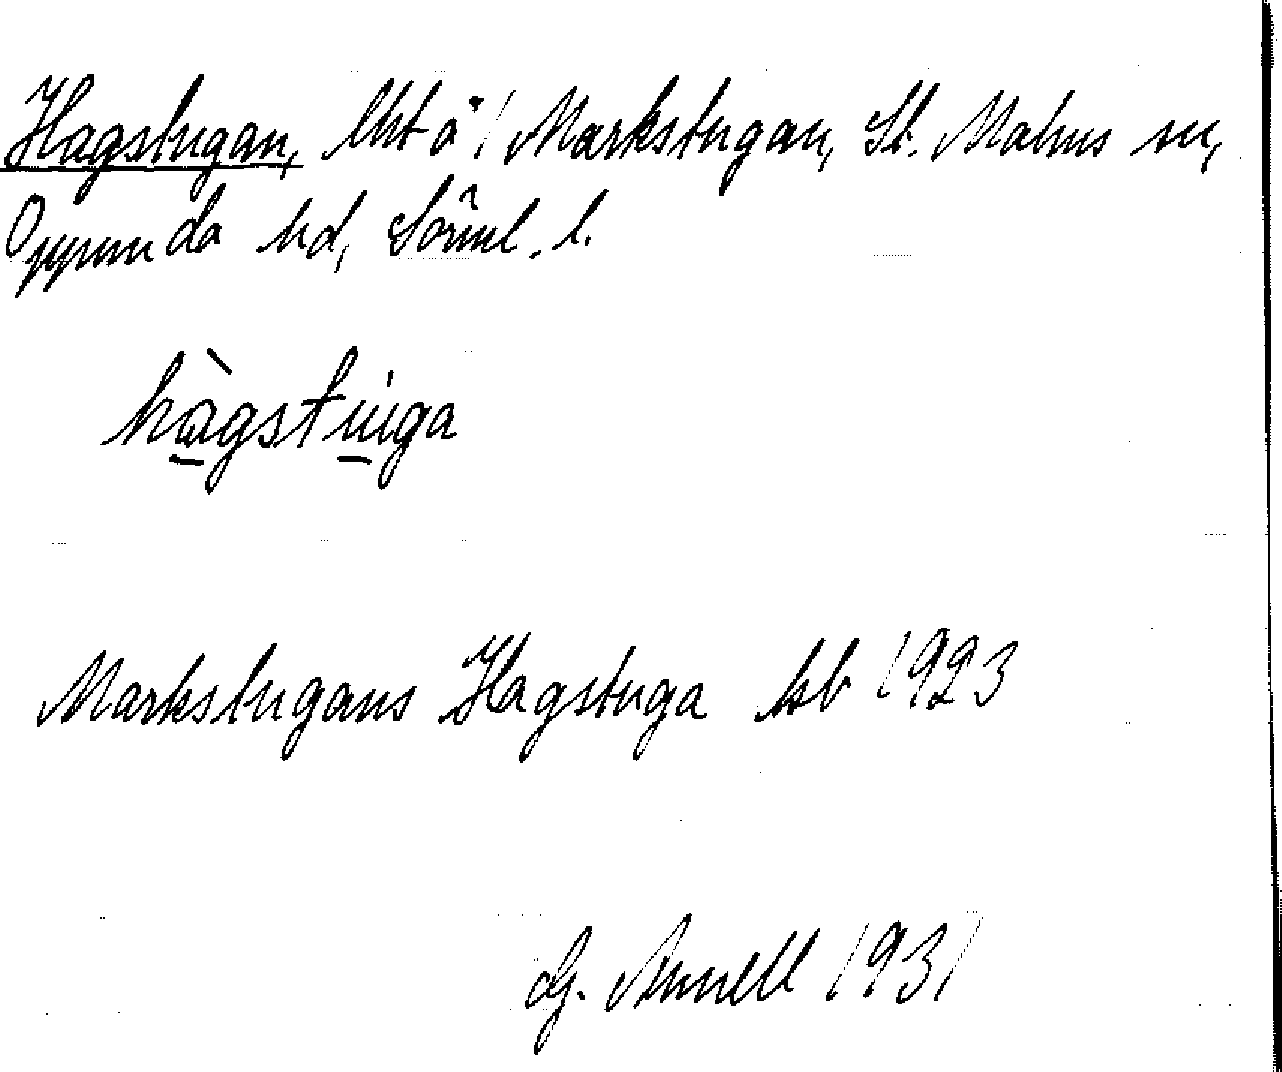 Hagstugan, lht å 1 Markstugan, St. Malms sn,
Oppunda hd, Sörml. l.
hàgstuga
Markstugans Hagstuga hb 1923
G. Annell 1931